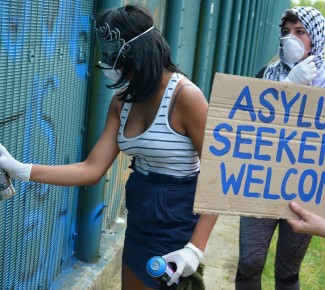 ASYLU
SEEKER
WELCO